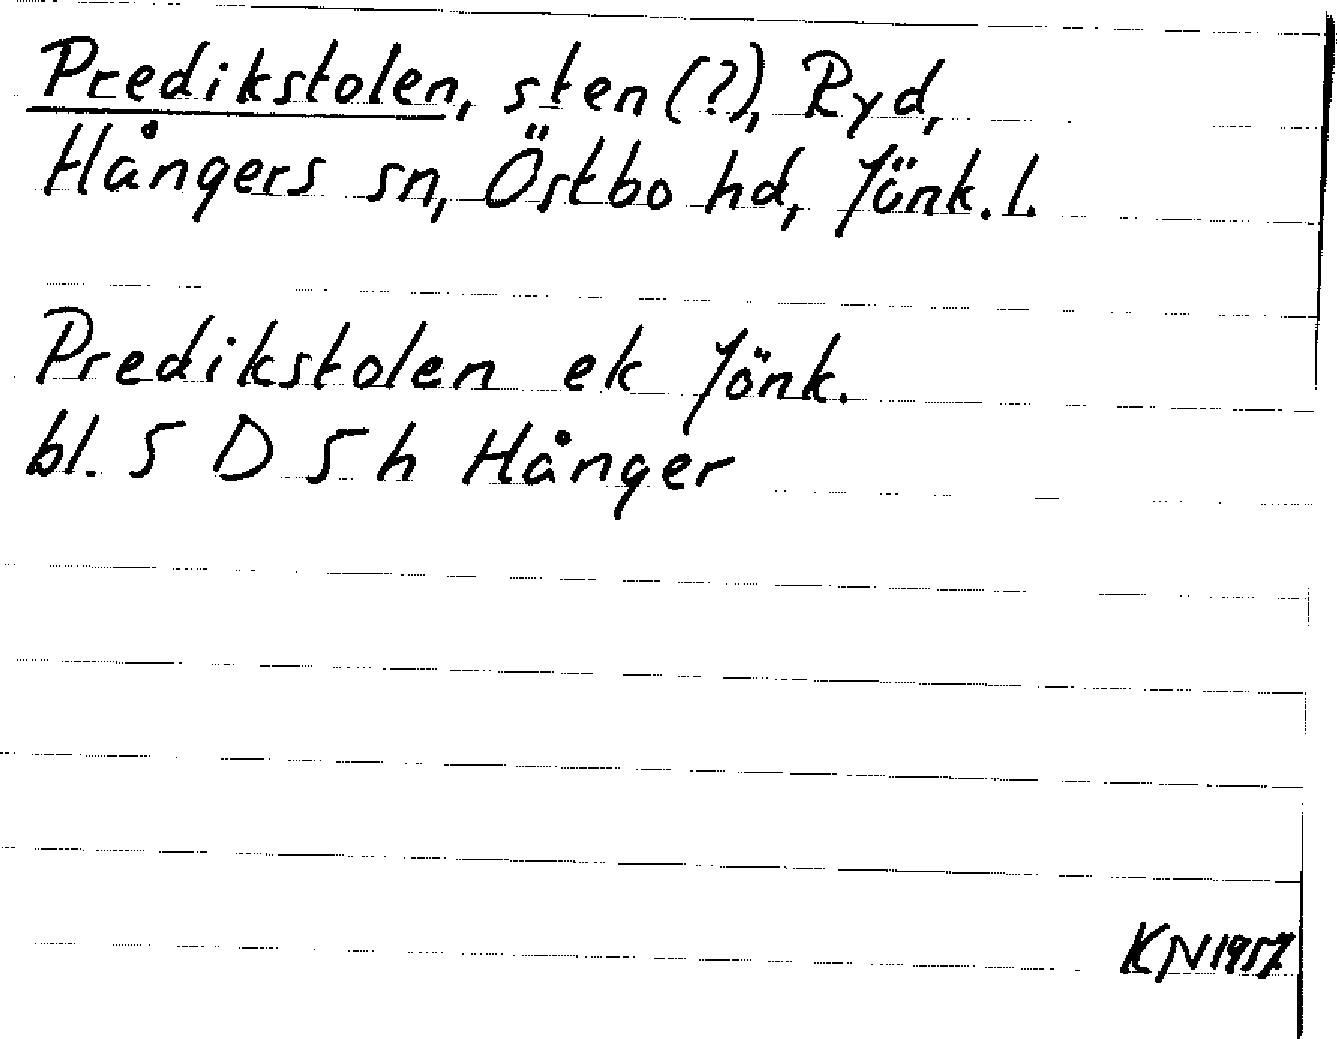 Predikstolen, sten (?), Ryd,
Hångers sn, Östbo hd, Jönk. l.
Predikstolen ek Jönk.
bl. 5 D 5 h Hånger
KN 1957